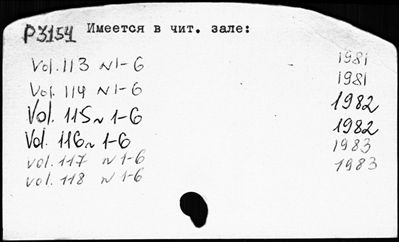 Р3154 Имеется в чит. зале:
Vol. 113 N 1-6 1981
Vol. 114 N 1-6 1981
Vol. 115 N 1-6 1982
Vol. 116 N 1-6 1982
vol. 117 N 1-6 1983
vol. 118 N 1-6 1983